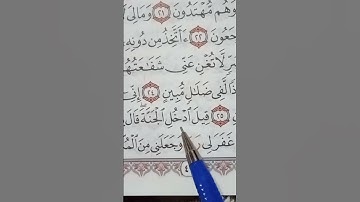 وَهُم مُّهْتَدُونَ ٢١ وَمَالِىَ
جَعُونَ ٢٢ ءَأَتَّخِذُ مِن دُونِهِ
لَّا تُغْنِ عَنِّى شَفَٰعَتُهُمْ
ذًا لَّفِى ضَلَٰلٍ مُّبِينٍ ٢٤ إِنِّى
٢٥ قِيلَ ٱدْخُلِ ٱلْجَنَّةَ ۖ قَالَ
غَفَرَ لِى وَجَعَلَنِى مِنَ ٱلْمُ